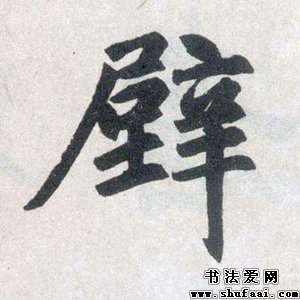 壁
书法爱网
www.shufaai.com